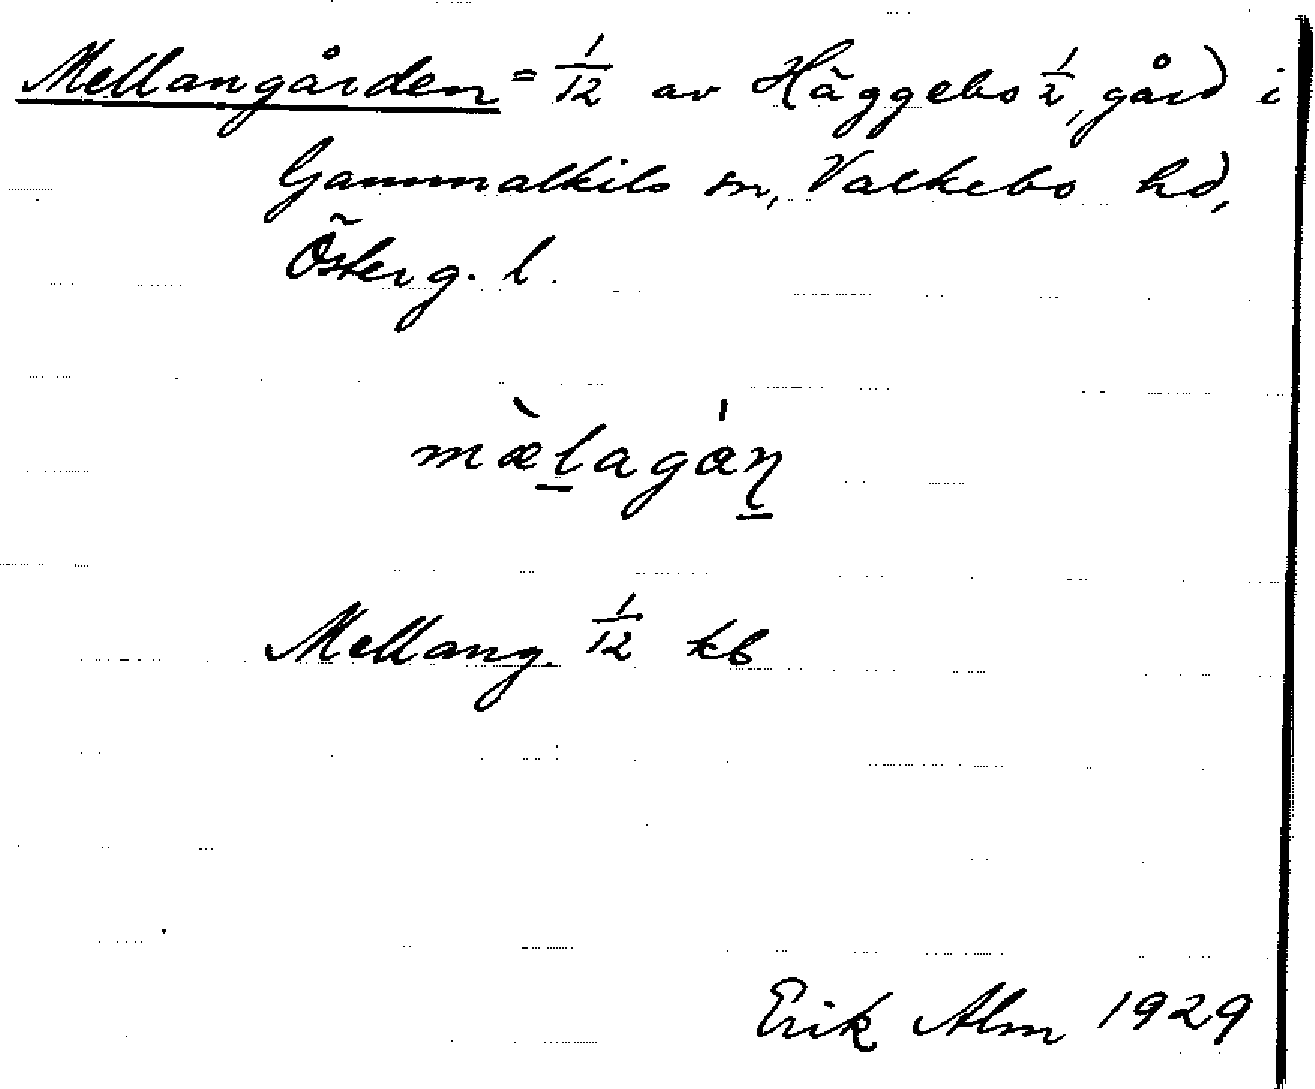 Mellangården = 1/12 av Häggebo 1/2, gård i
Gammalkils sn, Valkebo hd,
Österg. l.
mæ̀l̠agáṉ
Mellang. 1/12 kb
Erik Alm 1929